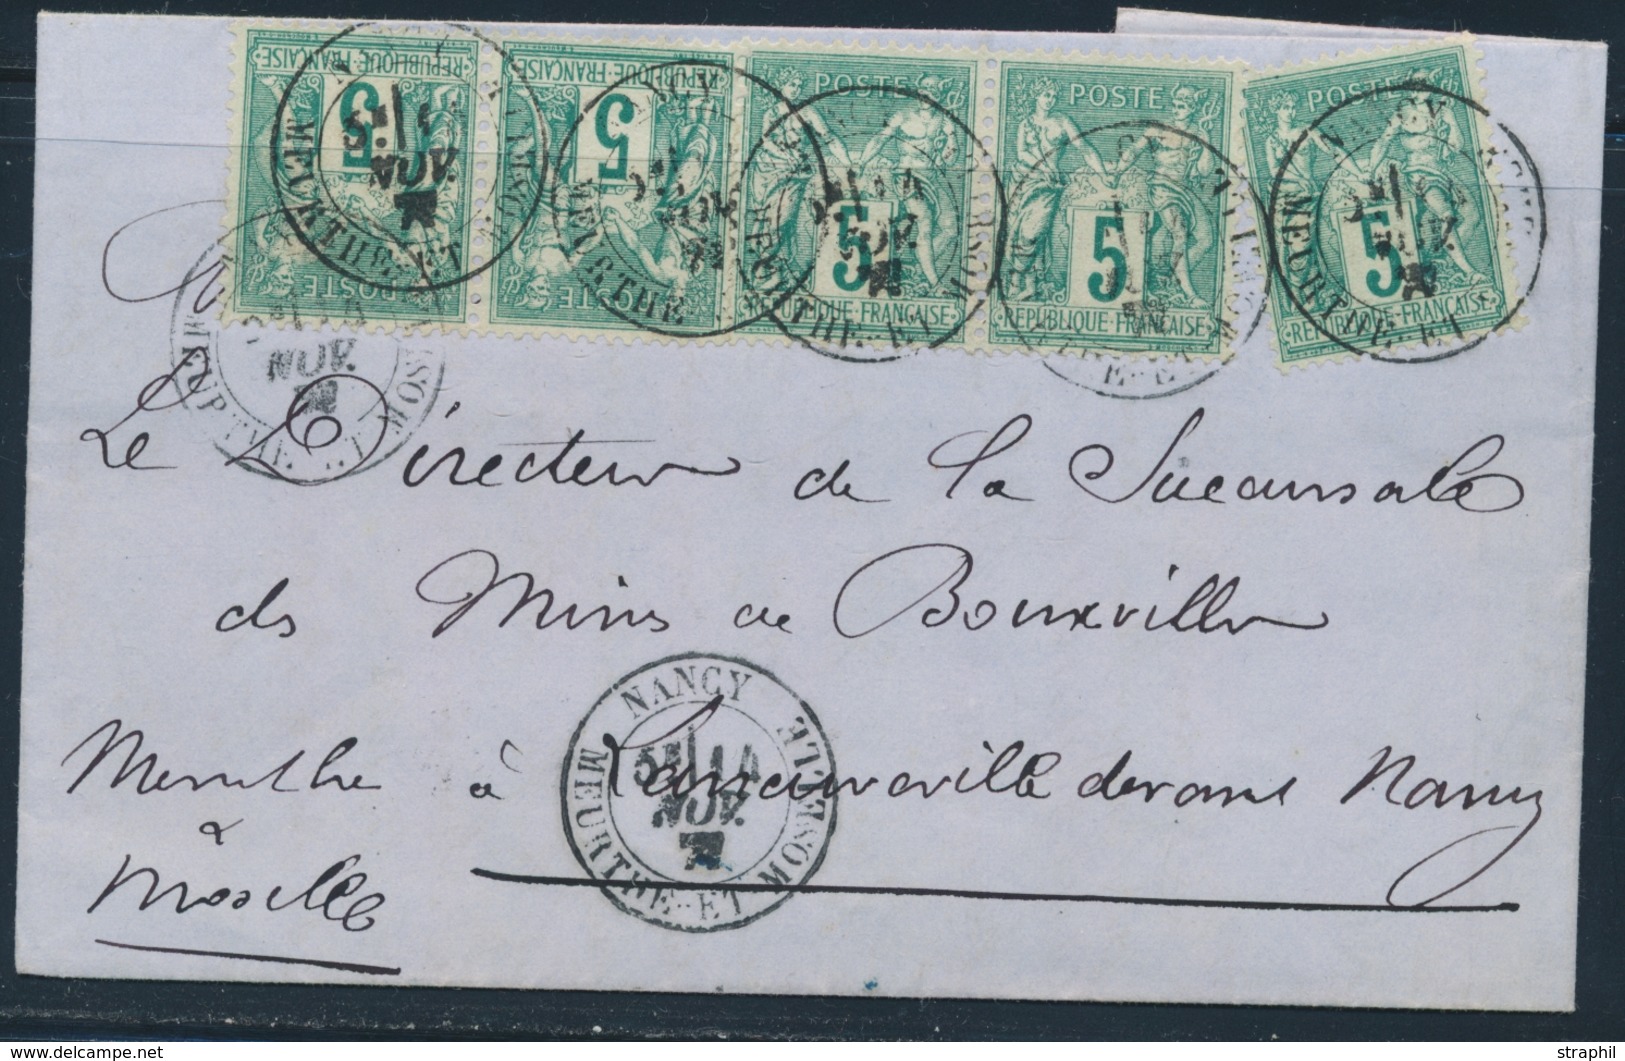 POSTE
5
REPUBLIQUE FRANÇAISE
POSTE
5
REPUBLIQUE FRANÇAISE
POSTE
5
REPUBLIQUE · FRANÇAISE
POSTE
5
REPUBLIQUE · FRANÇAISE
POSTE
5
REPUBLIQUE · FRANÇAISE
Le Directeur de la Succursale
des Mines de Bouxviller
à Laneuveville devant Nancy
Meurthe
&
Moselle
NANCY
14
NOV.
MEURTHE-ET-MOSELLE
straphil